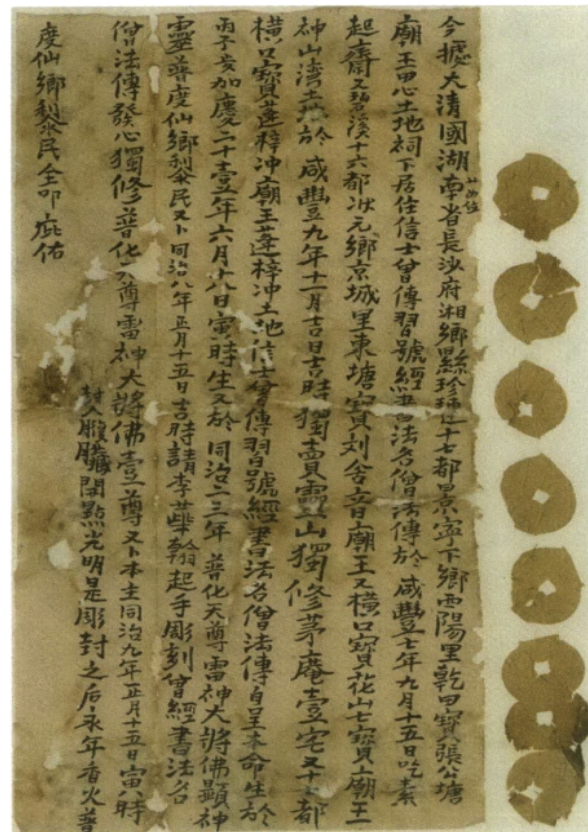 今據大清國湖南省長沙府湘鄉縣珍漣十七都景寧下鄉西陽里乾甲寶張公塘
廟王思心土地祠下居住信士曾傳習號經書法名僧法傳於咸豐七年九月十五日吃素
起齋又碧溪十六都狀元鄉京城里東塘寶刘舍音廟王又橫口寶花山七寶上廟王
神山灣土地於咸豐九年十一月吉日吉時獨賣靈山獨修茅庵壹宅又十七都
橫口寶蓬梓冲廟王蓬梓冲土地信士曾傳習號經書法名僧法傳自呈本命生於
丙子歲加慶二十壹年六月十八日寅時生又於同治二三年普化天尊雷神大將佛顯神
靈普度仙鄉利眾民又卜同治八年正月十五日吉時請李華翰起手彫刻曾經書法名
僧法傳發心獨修普化天尊雷神大將佛壹尊又卜本主同治九年正月十五日寅八時
髮服臟開點光明是彫封之后永年香火普
度仙鄉利眾民全叩庇佑